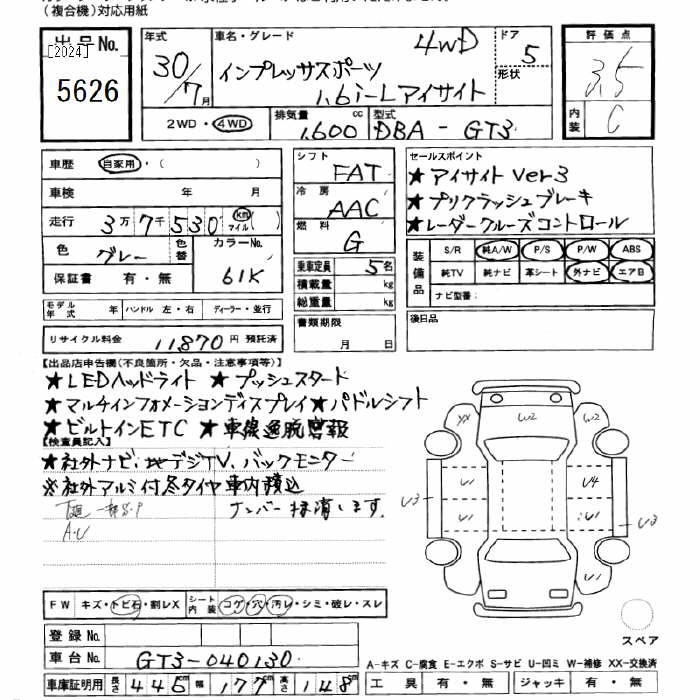 (複合機)対応用紙
出品No.
[2024]
5626
年式
30/7月
車名・グレード
インプレッサスポーツ
4WD
1.6i-Lアイサイト
ドア
5
形状
2WD・4WD
排気量
1,600cc
型式
DBA-GT3
評価点
3.5
内装
C
車歴 自家用・( )
車検 年 月
走行 3万7千530km マイル( )
色 グレー 色替 カラーNo. 61K
保証書 有・無
モデル年式 年 ハンドル 左・右 ディーラー・並行
リサイクル料金 11,870円 預託済
シフト
FAT
冷房
AAC
燃料
G
乗車定員 5名
積載量 kg
総重量 kg
書類期限
月 日
セールスポイント
★アイサイトver3
★プリクラッシュブレーキ
★レーダークルーズコントロール
装備品
S/R 純A/W P/S P/W ABS
純TV 純ナビ 革シート 外ナビ エアB
ナビ型番:
後日品
【出品店申告欄(不良箇所・欠品・注意事項等)】
★LEDヘッドライト ★プッシュスタート
★マルチインフォメーションディスプレイ★パドルシフト
★ビルトインETC ★車線逸脱警報
【検査員記入】
★社外ナビ、地デジTV、バックモニター
※社外アルミ付冬タイヤ車内積込
ナンバー抹消します。
A・U
XX W2 W2
U1 U4
U3 U1 U1 U3
U1
FW キズ・トビ石・割レX シート内装 コゲ・穴・汚レ・シミ・破レ・スレ
登録No.
車台No. GT3-040130
車庫証明用 長さ 446cm 幅 177cm 高さ 148cm
スペア
A-キズ C-腐食 E-エクボ S-サビ U-凹ミ W-補修 XX-交換済
工具 有・無 ジャッキ 有・無